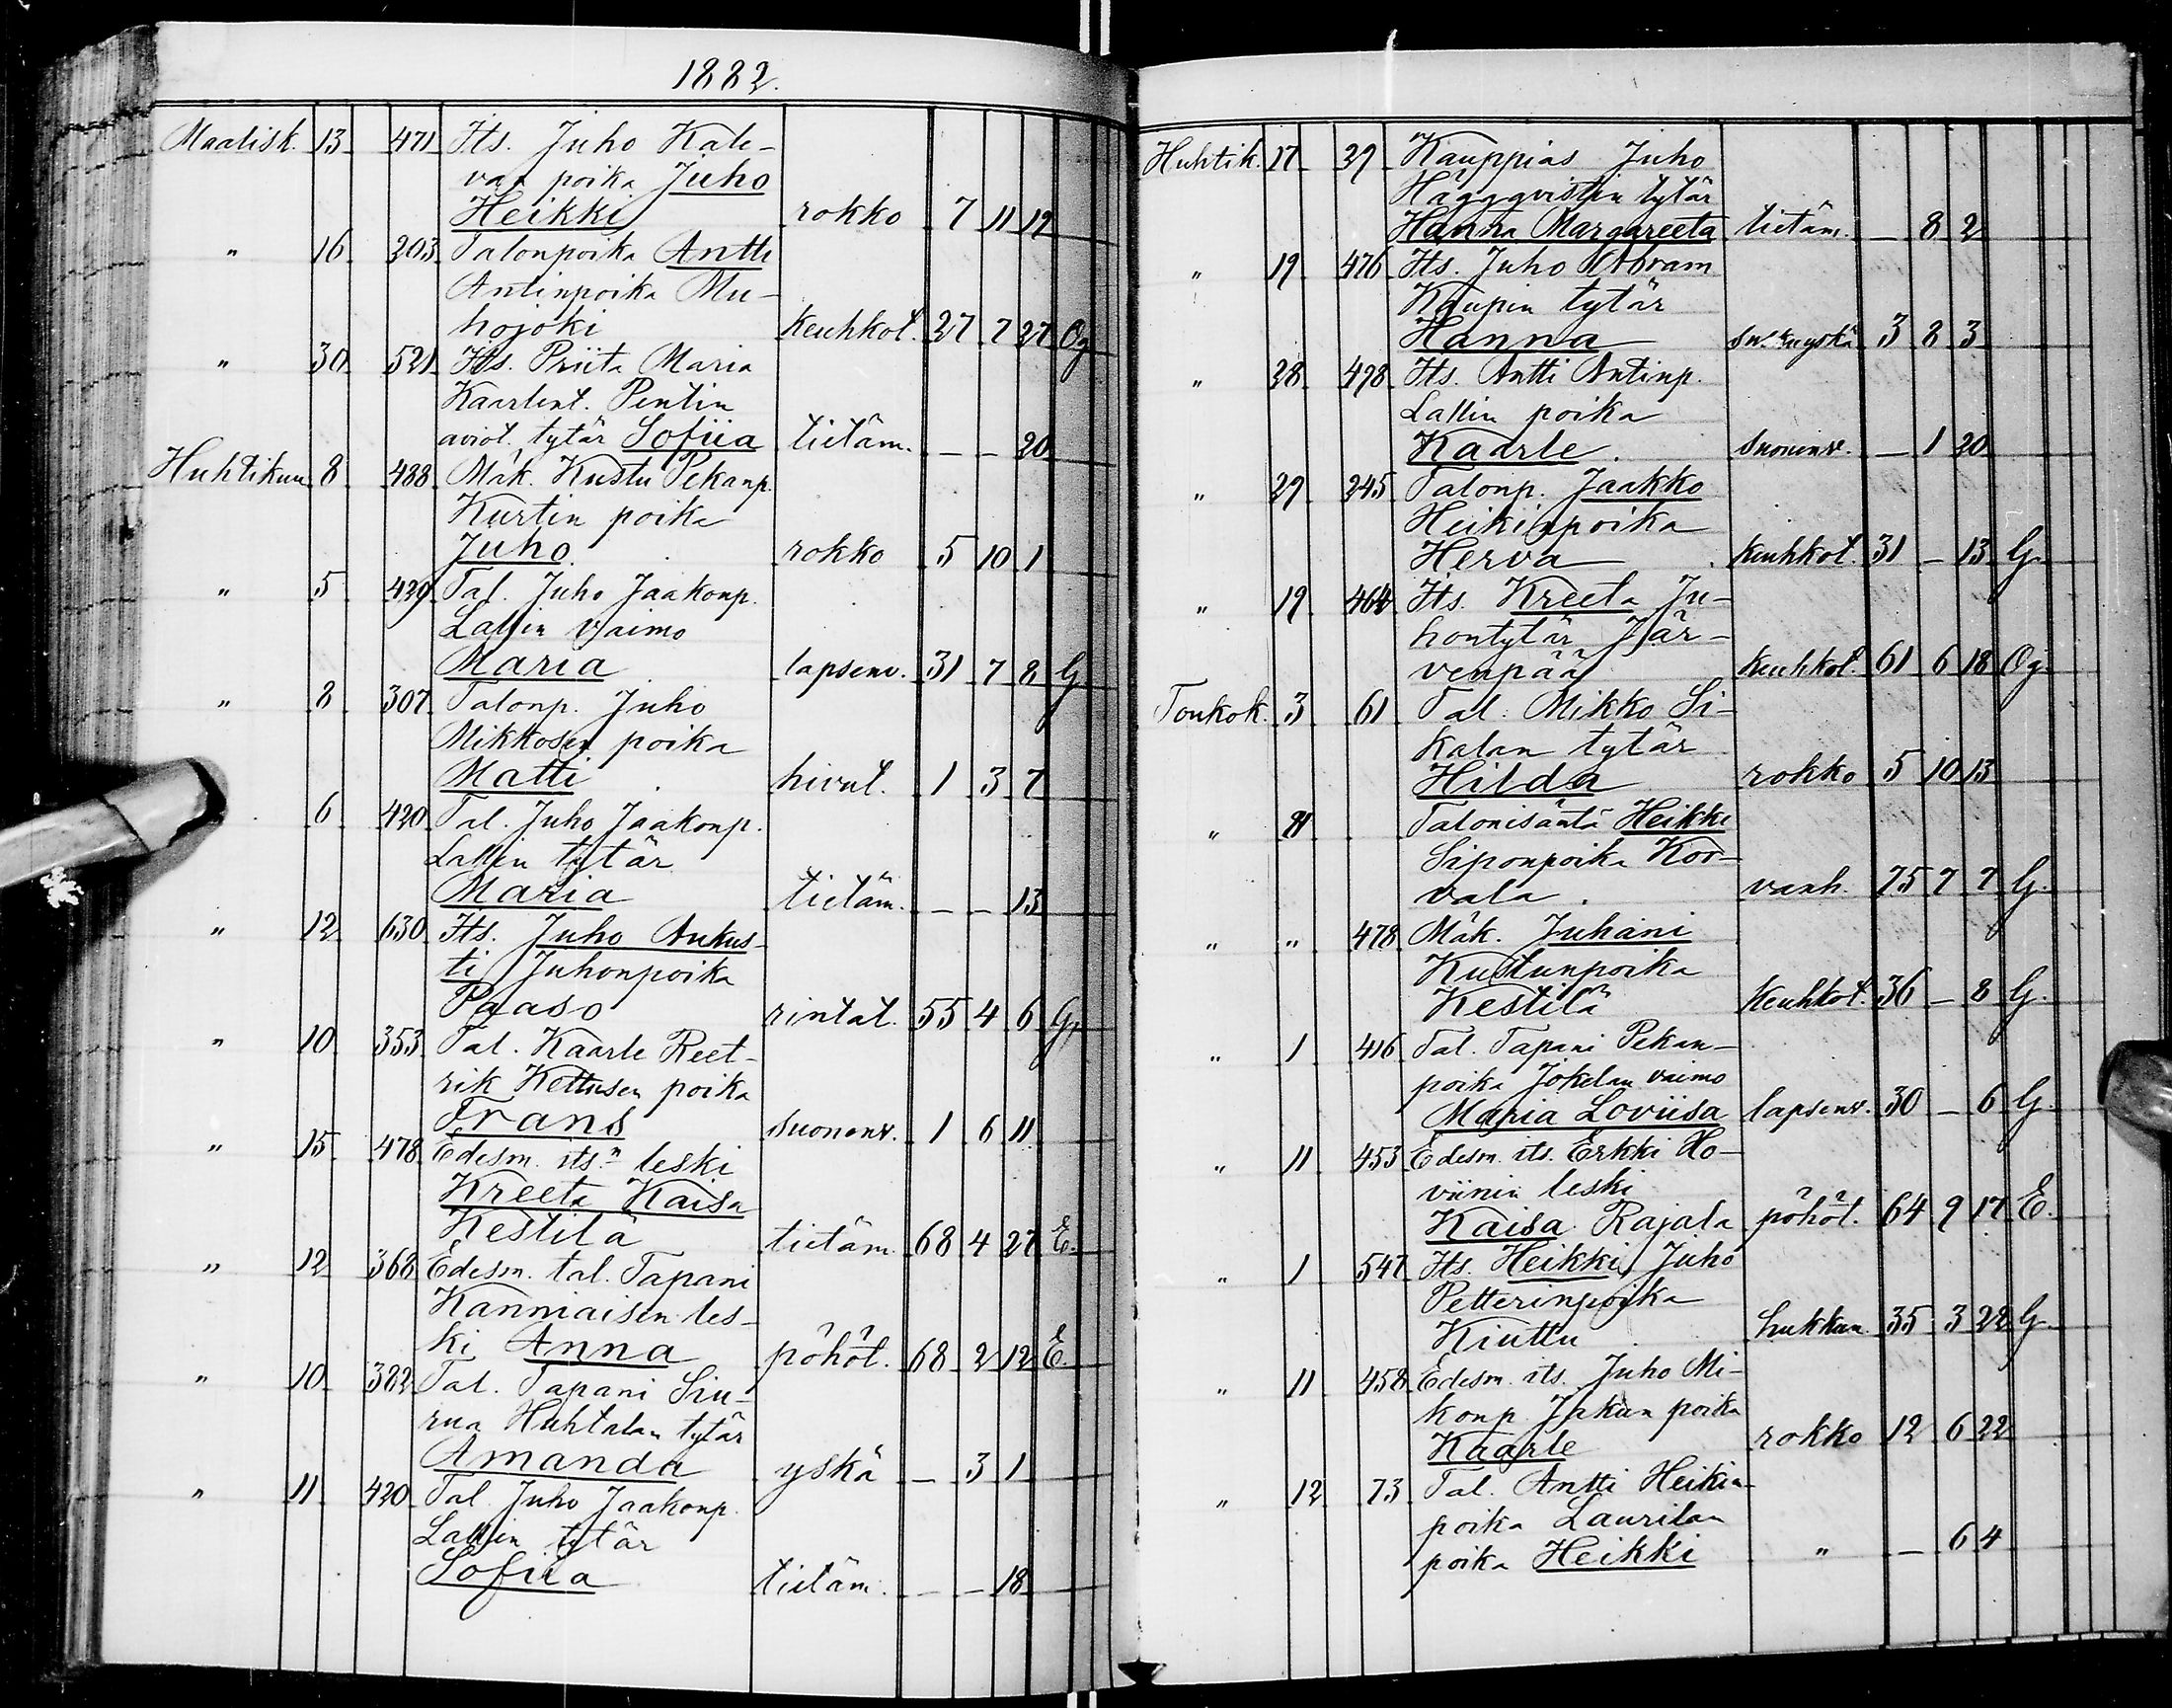 1882.
Maalisk. 13 471 Its. Juho Kale-
van poika Juho
Heikki rokko 7 11 19
" 16 203 Talonpoika Antti
Antinpoika Mu-
hojoki keuhkot. 27 7 27 Og
" 30 521 Its. Priita Maria
Kaarlent. Pentin
aviot. tytär Sofiia tietäm. — — 20
Huhtikuu 8 488 Mäk. Kustu Pekanp.
Kurtin poika
Juho rokko 5 10 1
" 5 439 Tal. Juho Jaakonp.
Lallin vaimo
Maria lapsenv. 31 7 8 G
" 8 307 Talonp. Juho
Mikkosen poika
Matti hivut. 1 3 7
6 420 Tal. Juho Jaakonp.
Lallin tytär
Maria tietäm. — — 13
" 12 630 Its. Juho Aukus-
ti Juhonpoika
Paaso rintat. 55 4 6 G.
" 10 353 Tal. Kaarle Reet-
rik Kettusen poika
Frans suonenv. 1 6 11
" 15 478 Edesm. its:n leski
Kreeta Kaisa
Kestilä tietäm. 68 4 27 E.
" 12 368 Edesm. tal. Tapani
Kanniaisen les-
ki Anna pöhöt. 68 2 12 E.
" 10 382 Tal. Tapani Siu-
rua Huhtalan tytär
Amanda yskä — 3 1
" 11 420 Tal. Juho Jaakonp.
Lallin tytär
Sofiia tietäm. — — 18
Huhtik. 17 29 Kauppias Juho
Häggqvistin tytär
Hanna Margareeta tietäm. — 8 2
" 19 476 Its. Juho Abram
Kaupin tytär
Hanna 3 8 3
" 28 498 Its. Antti Antinp.
Lallin poika
Kaarle. suonenv. — 1 20
" 29 245 Talonp. Jaakko
Heikinpoika
Herva keuhkot. 31 — 13 G.
" 19 464 Its. Kreeta Ju-
hontytär Jär-
venpää keuhkot. 61 6 18 Og.
Toukok. 3 61 Tal. Mikko Si-
kalan tytär
Hilda rokko 5 10 13
" Talonisäntä Heikki
Siponpoika Kor-
vala. vanh. 75 7 7 G.
" " 478 Mäk. Juhani
Kustunpoika
Kestilä keuhkot. 36 — 8 G.
" 1 416 Tal. Tapani Pekan-
poika Jokelan vaimo
Maria Loviisa lapsenv. 30 — 6 G.
" 11 453 Edesm. its. Erkki Ho-
viinin leski
Kaisa Rajala pöhöt. 64 9 17 E.
" 1 547 Its. Heikki Juho
Petterinpoika
Kiuttu hukkun. 35 3 22 G
" 11 458 Edesm. its. Juho Mi-
konp. Jakun poika
Kaarle rokko 12 6 22
" 12 73 Tal. Antti Heikin-
poika Laurilan
poika Heikki " — 6 4